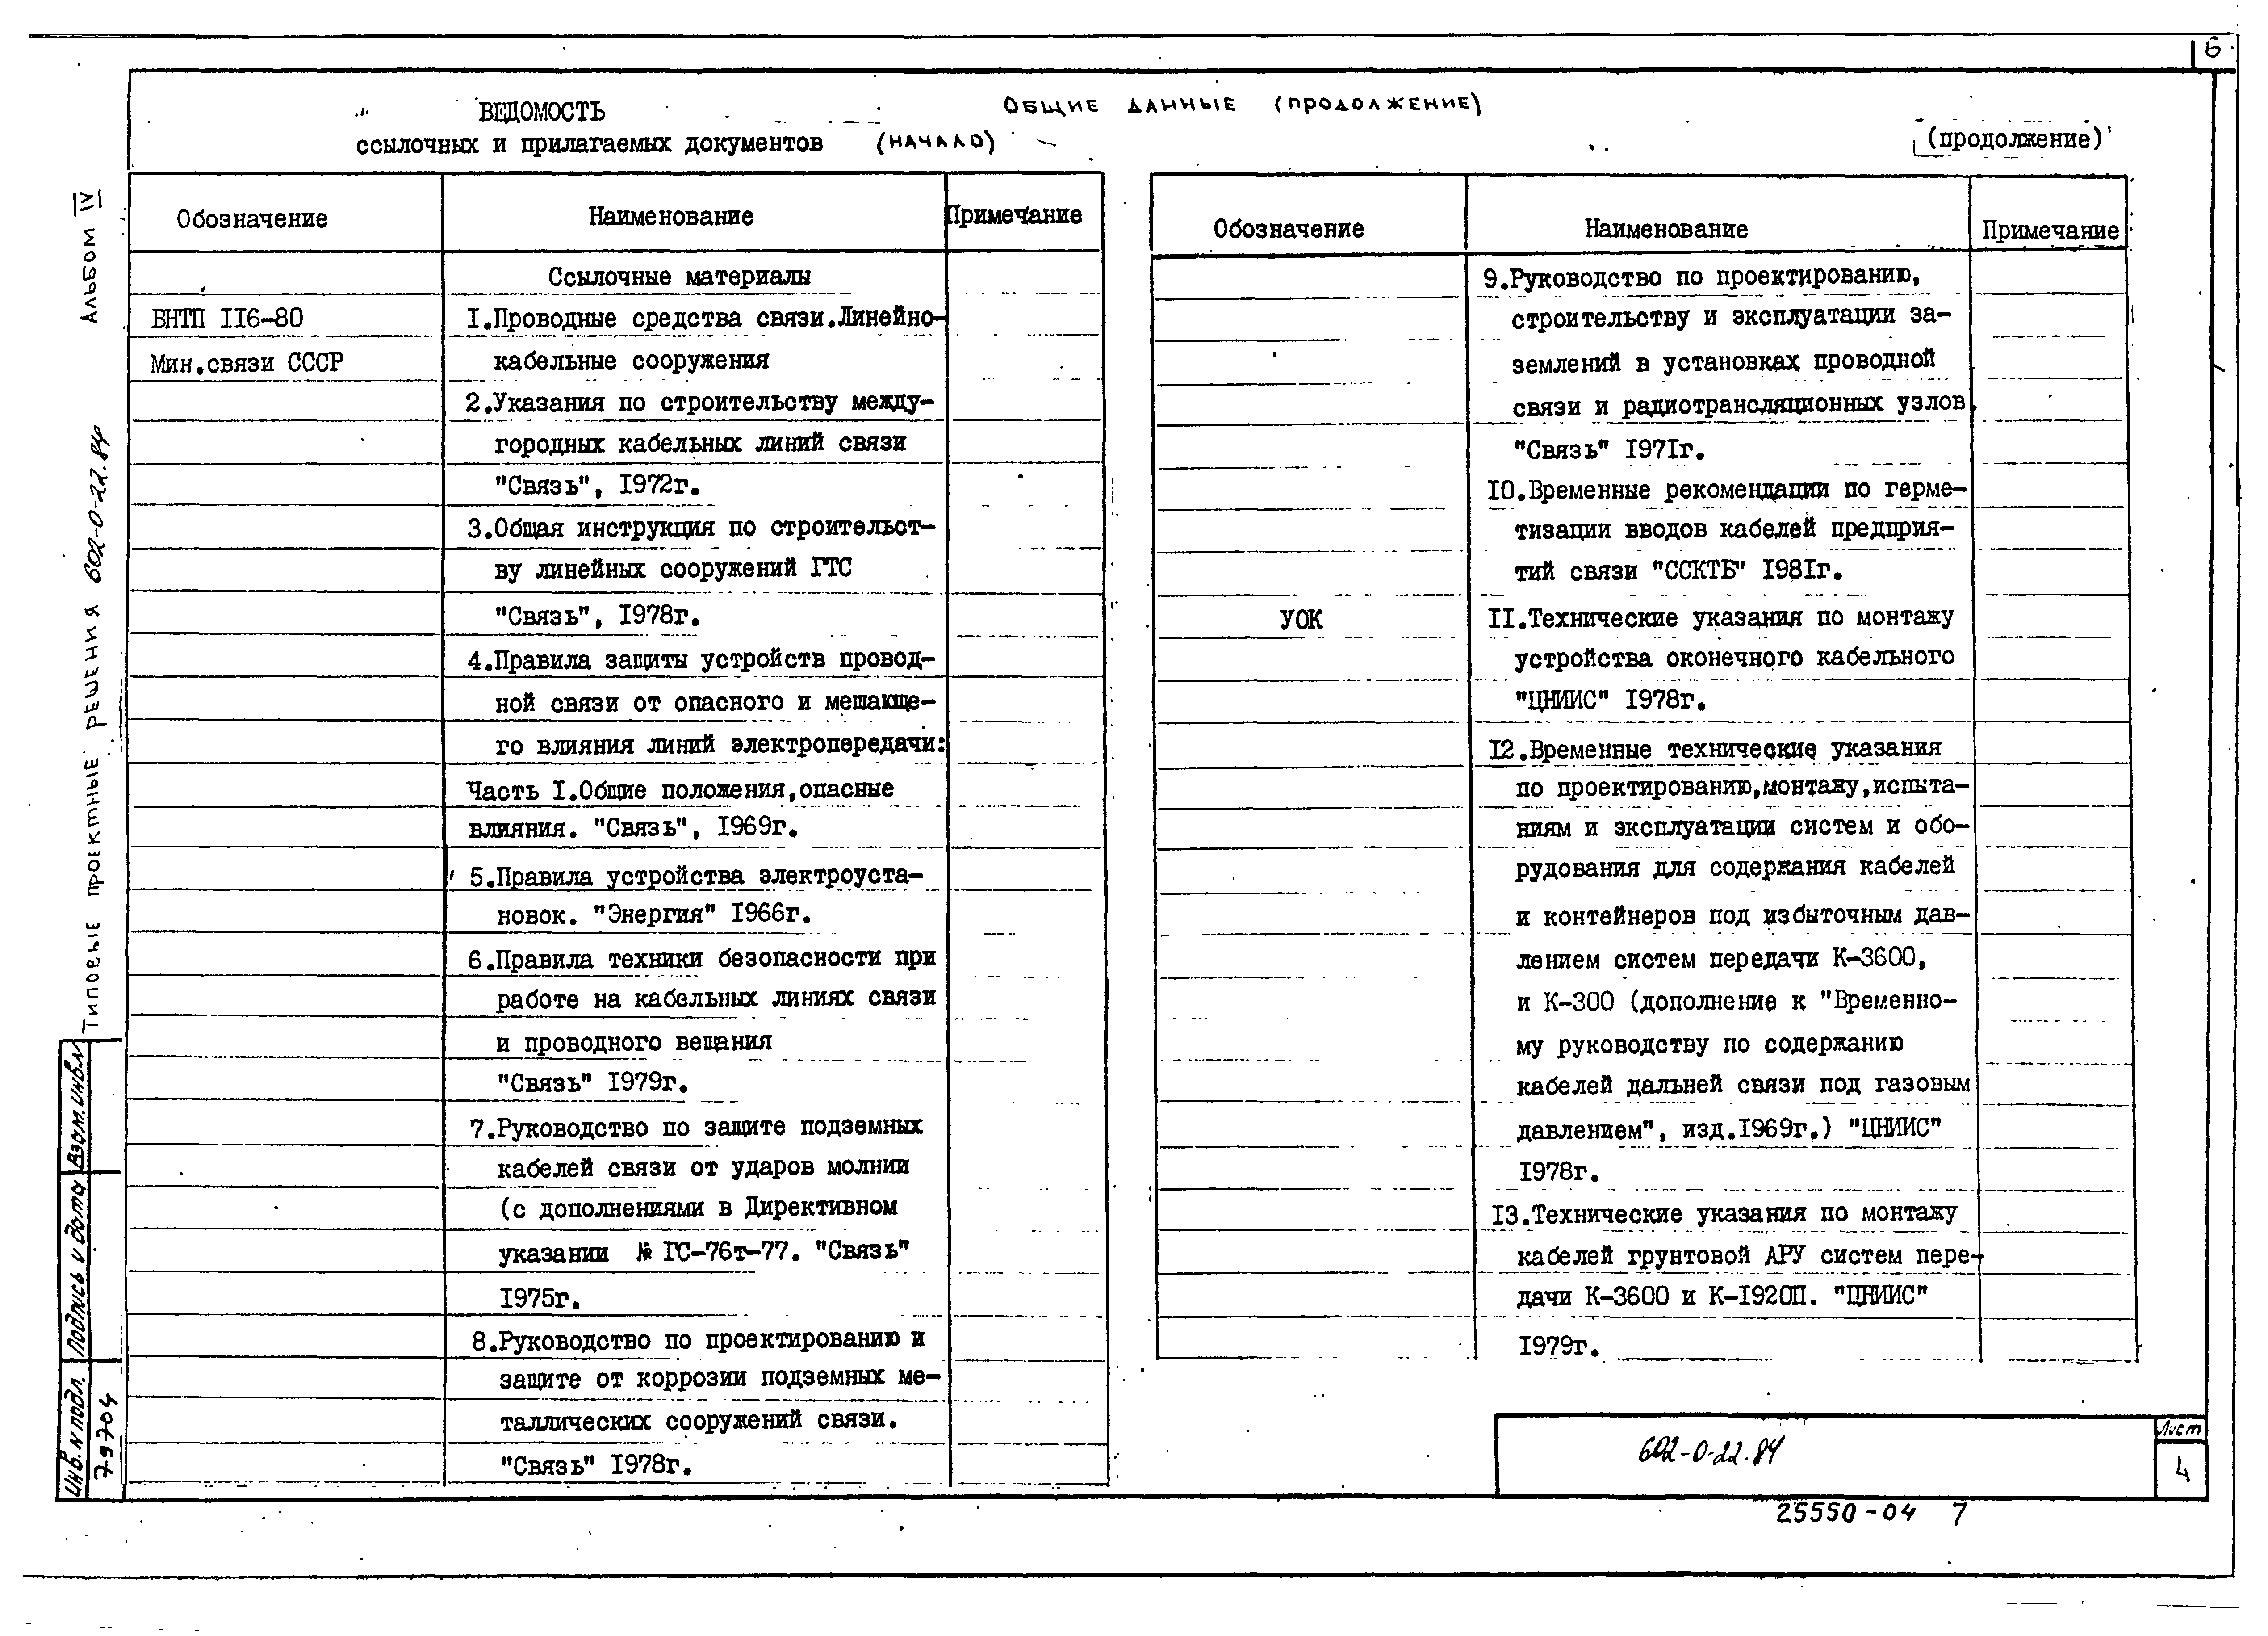 6
ВЕДОМОСТЬ
ссылочных и прилагаемых документов (НАЧАЛО)
ОБЩИЕ ДАННЫЕ (ПРОДОЛЖЕНИЕ)
(продолжение)
Обозначение Наименование Примечание
Ссылочные материалы
ВНТП II6-80 I.Проводные средства связи.Линейно-
Мин.связи СССР кабельные сооружения
2.Указания по строительству между-
городных кабельных линий связи
"Связь", I972г.
3.Общая инструкция по строительст-
ву линейных сооружений ГТС
"Связь", I978г.
4.Правила защиты устройств провод-
ной связи от опасного и мешающе-
го влияния линий электропередачи:
Часть I.Общие положения,опасные
влияния. "Связь", I969г.
5.Правила устройства электроуста-
новок. "Энергия" I966г.
6.Правила техники безопасности при
работе на кабельных линиях связи
и проводного вещания
"Связь" I979г.
7.Руководство по защите подземных
кабелей связи от ударов молнии
(с дополнениями в Директивном
указании № ГС-76т-77. "Связь"
I975г.
8.Руководство по проектированию и
защите от коррозии подземных ме-
таллических сооружений связи.
"Связь" I978г.
Обозначение Наименование Примечание
9.Руководство по проектированию,
строительству и эксплуатации за-
землений в установках проводной
связи и радиотрансляционных узлов,
"Связь" I97Iг.
I0.Временные рекомендации по герме-
тизации вводов кабелей предприя-
тий связи "ССКТБ" I98Iг.
УОК II.Технические указания по монтажу
устройства оконечного кабельного
"ЦНИИС" I978г.
I2.Временные технические указания
по проектированию,монтажу,испыта-
ниям и эксплуатации систем и обо-
рудования для содержания кабелей
и контейнеров под избыточным дав-
лением систем передачи К-3600,
и К-300 (дополнение к "Временно-
му руководству по содержанию
кабелей дальней связи под газовым
давлением", изд.I969г.) "ЦНИИС"
I978г.
I3.Технические указания по монтажу
кабелей грунтовой АРУ систем пере-
дачи К-3600 и К-I920П. "ЦНИИС"
I979г.
Типовые проектные решения 602-0-22.84 Альбом IV
Инв.N подл. Подпись и дата Взам.инв.N
79704
602-0-22.84
Лист
4
25550-04 7